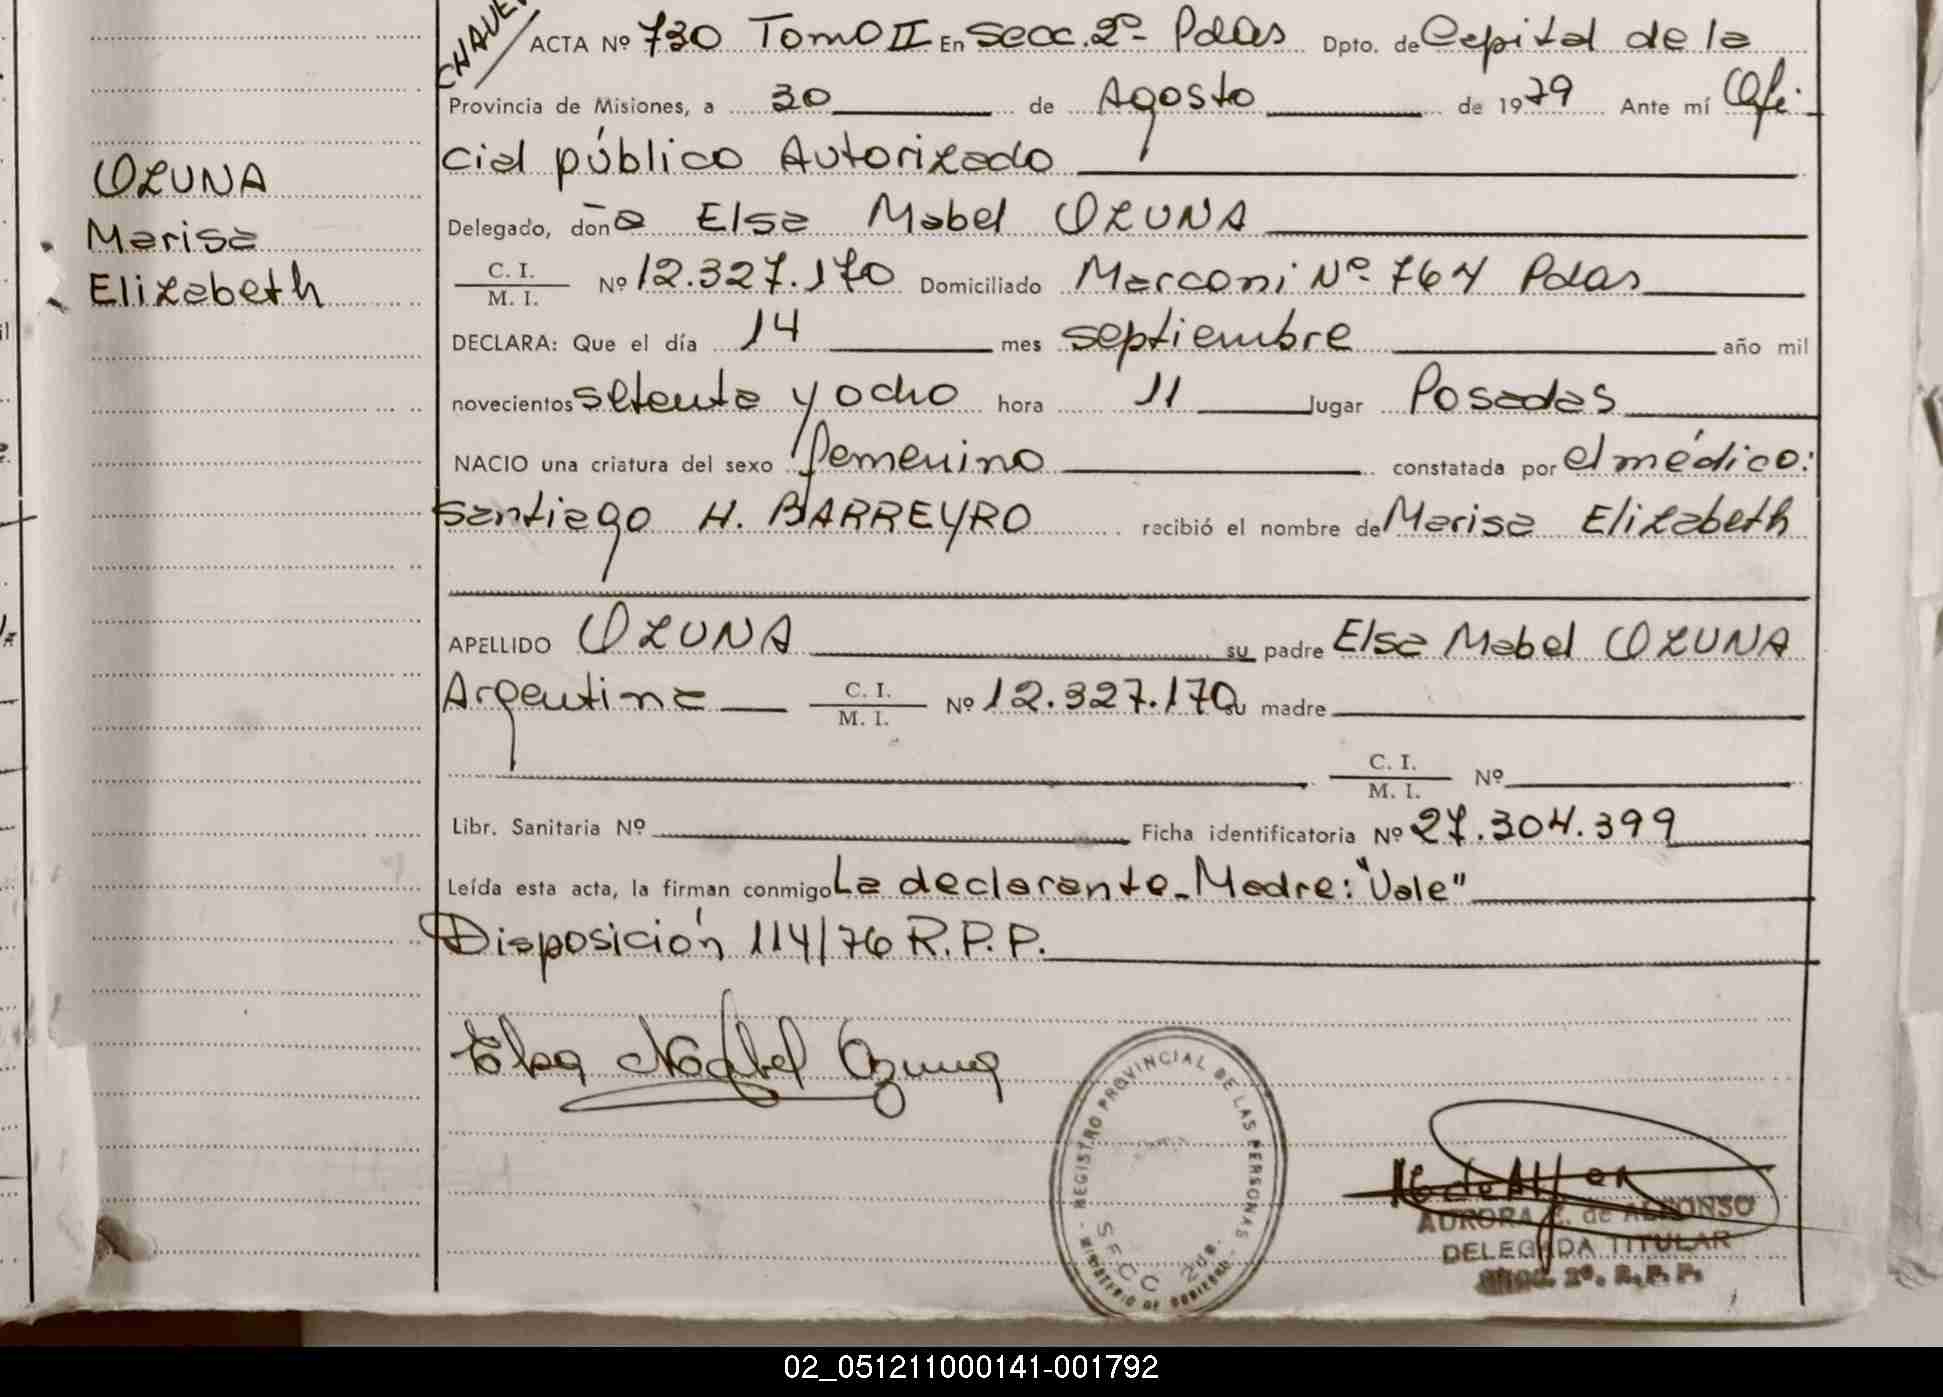 CHAVE
ACTA Nº 730 Tomo II En Secc. 2º Pdas Dpto. de Capital de la
Provincia de Misiones, a 30 de Agosto de 1979 Ante mí Ofi-
cial público Autorizado
OZUNA
Marisa
Elizabeth
Delegado, doña Elsa Mabel OZUNA
C. I.
M. I.
Nº 12.327.170 Domiciliado Marconi Nº 764 Pdas
DECLARA: Que el día 14 mes septiembre año mil
novecientos setenta y ocho hora 11 lugar Posadas
NACIO una criatura del sexo femenino constatada por el médico:
Santiago H. BARREYRO recibió el nombre de Marisa Elizabeth
APELLIDO OZUNA su padre Elsa Mabel OZUNA
Argentina C. I.
M. I.
Nº 12.327.170 su madre
C. I.
M. I.
Nº
Libr. Sanitaria Nº Ficha identificatoria Nº 27.304.399
Leída esta acta, la firman conmigo La declarante - Madre: "Vale"
Disposición 114/76 R.P.P.
Elsa Mabel Ozuna
REGISTRO PROVINCIAL DE LAS PERSONAS
SECC 2da.
MINISTERIO DE GOBIERNO
AURORA de ALFONSO
DELEGADA TITULAR
Secc. 2º. R. P. P.
02_051211000141-001792